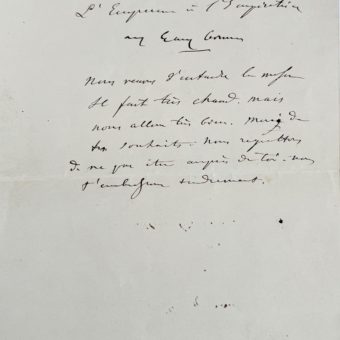 L'Empereur à l'Impératrice
aux Eaux Bonnes
Nous venons d'entendre la messe
Il fait très chaud. mais
nous allons très bien. merci de
tes souhaits. nous regrettons
de ne pas être auprès de toi. nous
t'embrassons tendrement.